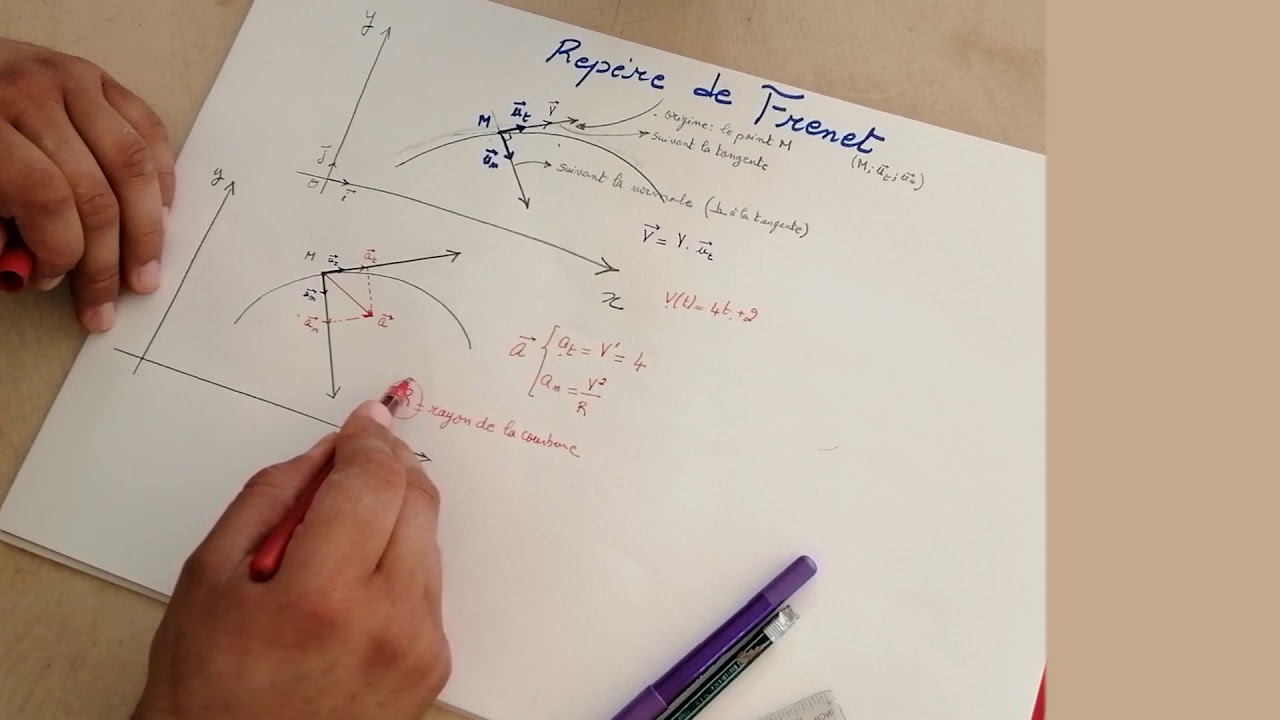 Repère de Frenet
y
M
u⃗t
V⃗
- origine: le point M
(M; u⃗t; u⃗n)
suivant la tangente
u⃗n
suivant la normale (⊥ à la tangente)
j⃗
O
i⃗
x
V⃗ = V. u⃗t
y
M
u⃗t
a⃗t
u⃗n
a⃗n
a⃗
V(t) = 4t + 2
a⃗ { at = V' = 4
an = V²/R
R = rayon de la courbure